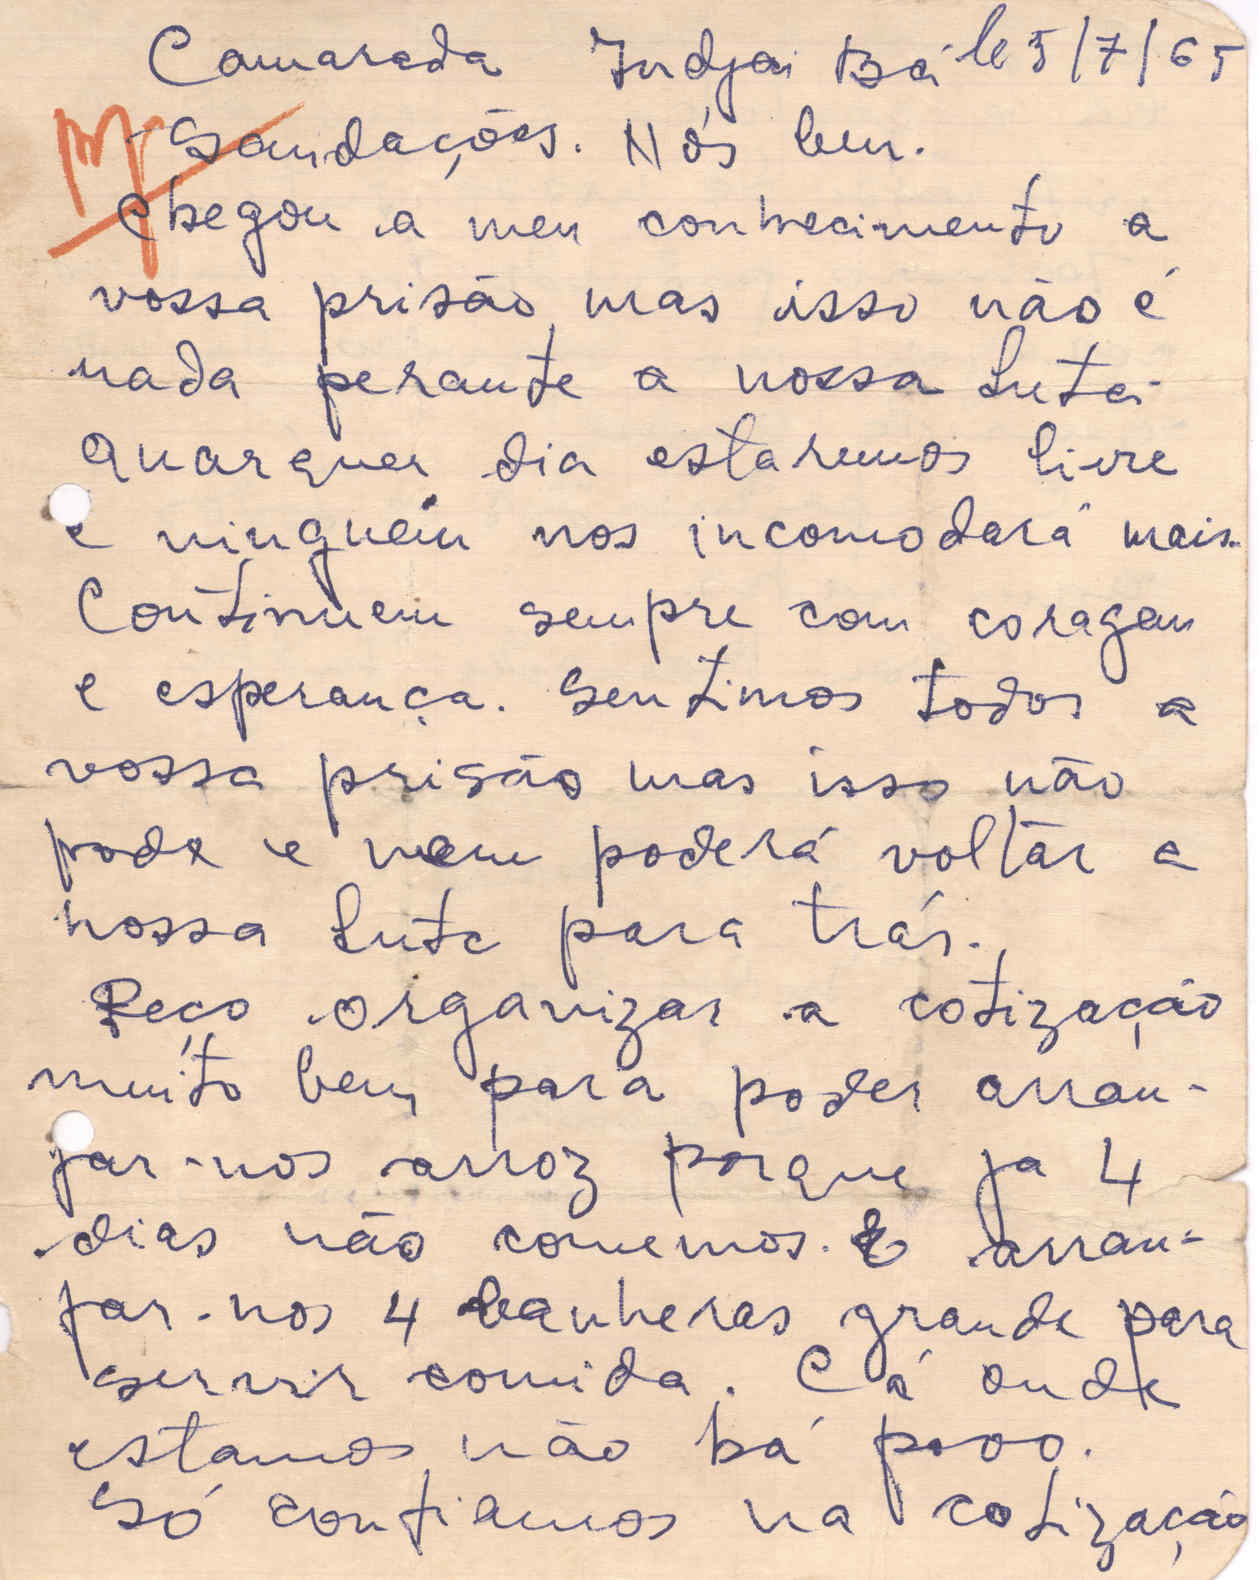 Camarada Indjai Bá le 5/7/65
Saudações. Nós bem.
Chegou a meu conhecimento a
vossa prisão, mas isso não é
nada perante a nossa luta.
Quarquer dia estaremos livre
e ninguém nos incomodará mais.
Continuem sempre com coragem
e esperança. Sentimos todos a
vossa prisão mas isso não
pode e nem poderá voltar a
nossa luta para trás.
Peço organizar a cotização
muito bem para poder arran-
jar-nos arroz porque ja 4
dias não comemos. E arran-
jar-nos 4 banheras grande para
servir comida. Cá onde
estamos não há povo.
Só confiamos na cotização